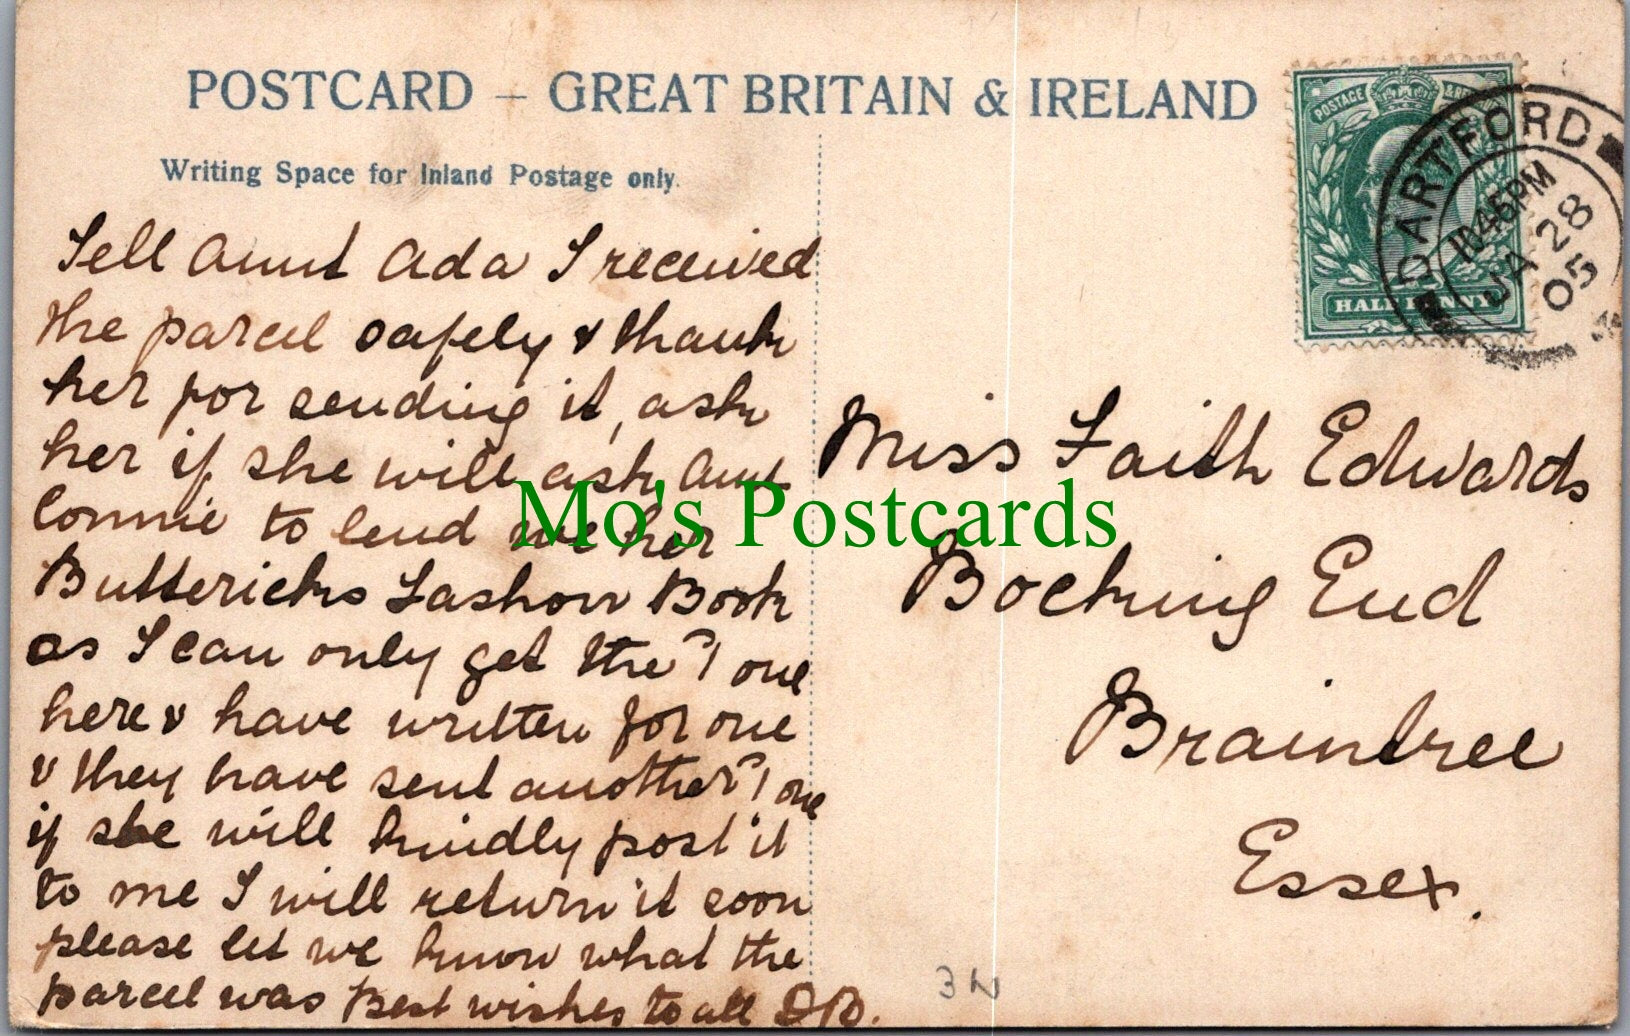 POSTCARD – GREAT BRITAIN & IRELAND
Writing Space for Inland Postage only.
POSTAGE & RE
HALF PENNY
DARTFORD
10.45PM
JA 28
05
Tell Aunt Ada I received
the parcel safely & thank
her for sending it, ask
her if she will ask Aunt
Connie to lend me her
Buttericks Fashion Book
as I can only get the 1 one
here & have written for one
& they have sent another 1 one
if she will kindly post it
to me I will return it soon
please let me know what the
parcel was Best wishes to all
Miss Faith Edwards
Bocking End
Braintree
Essex.
Mo's Postcards